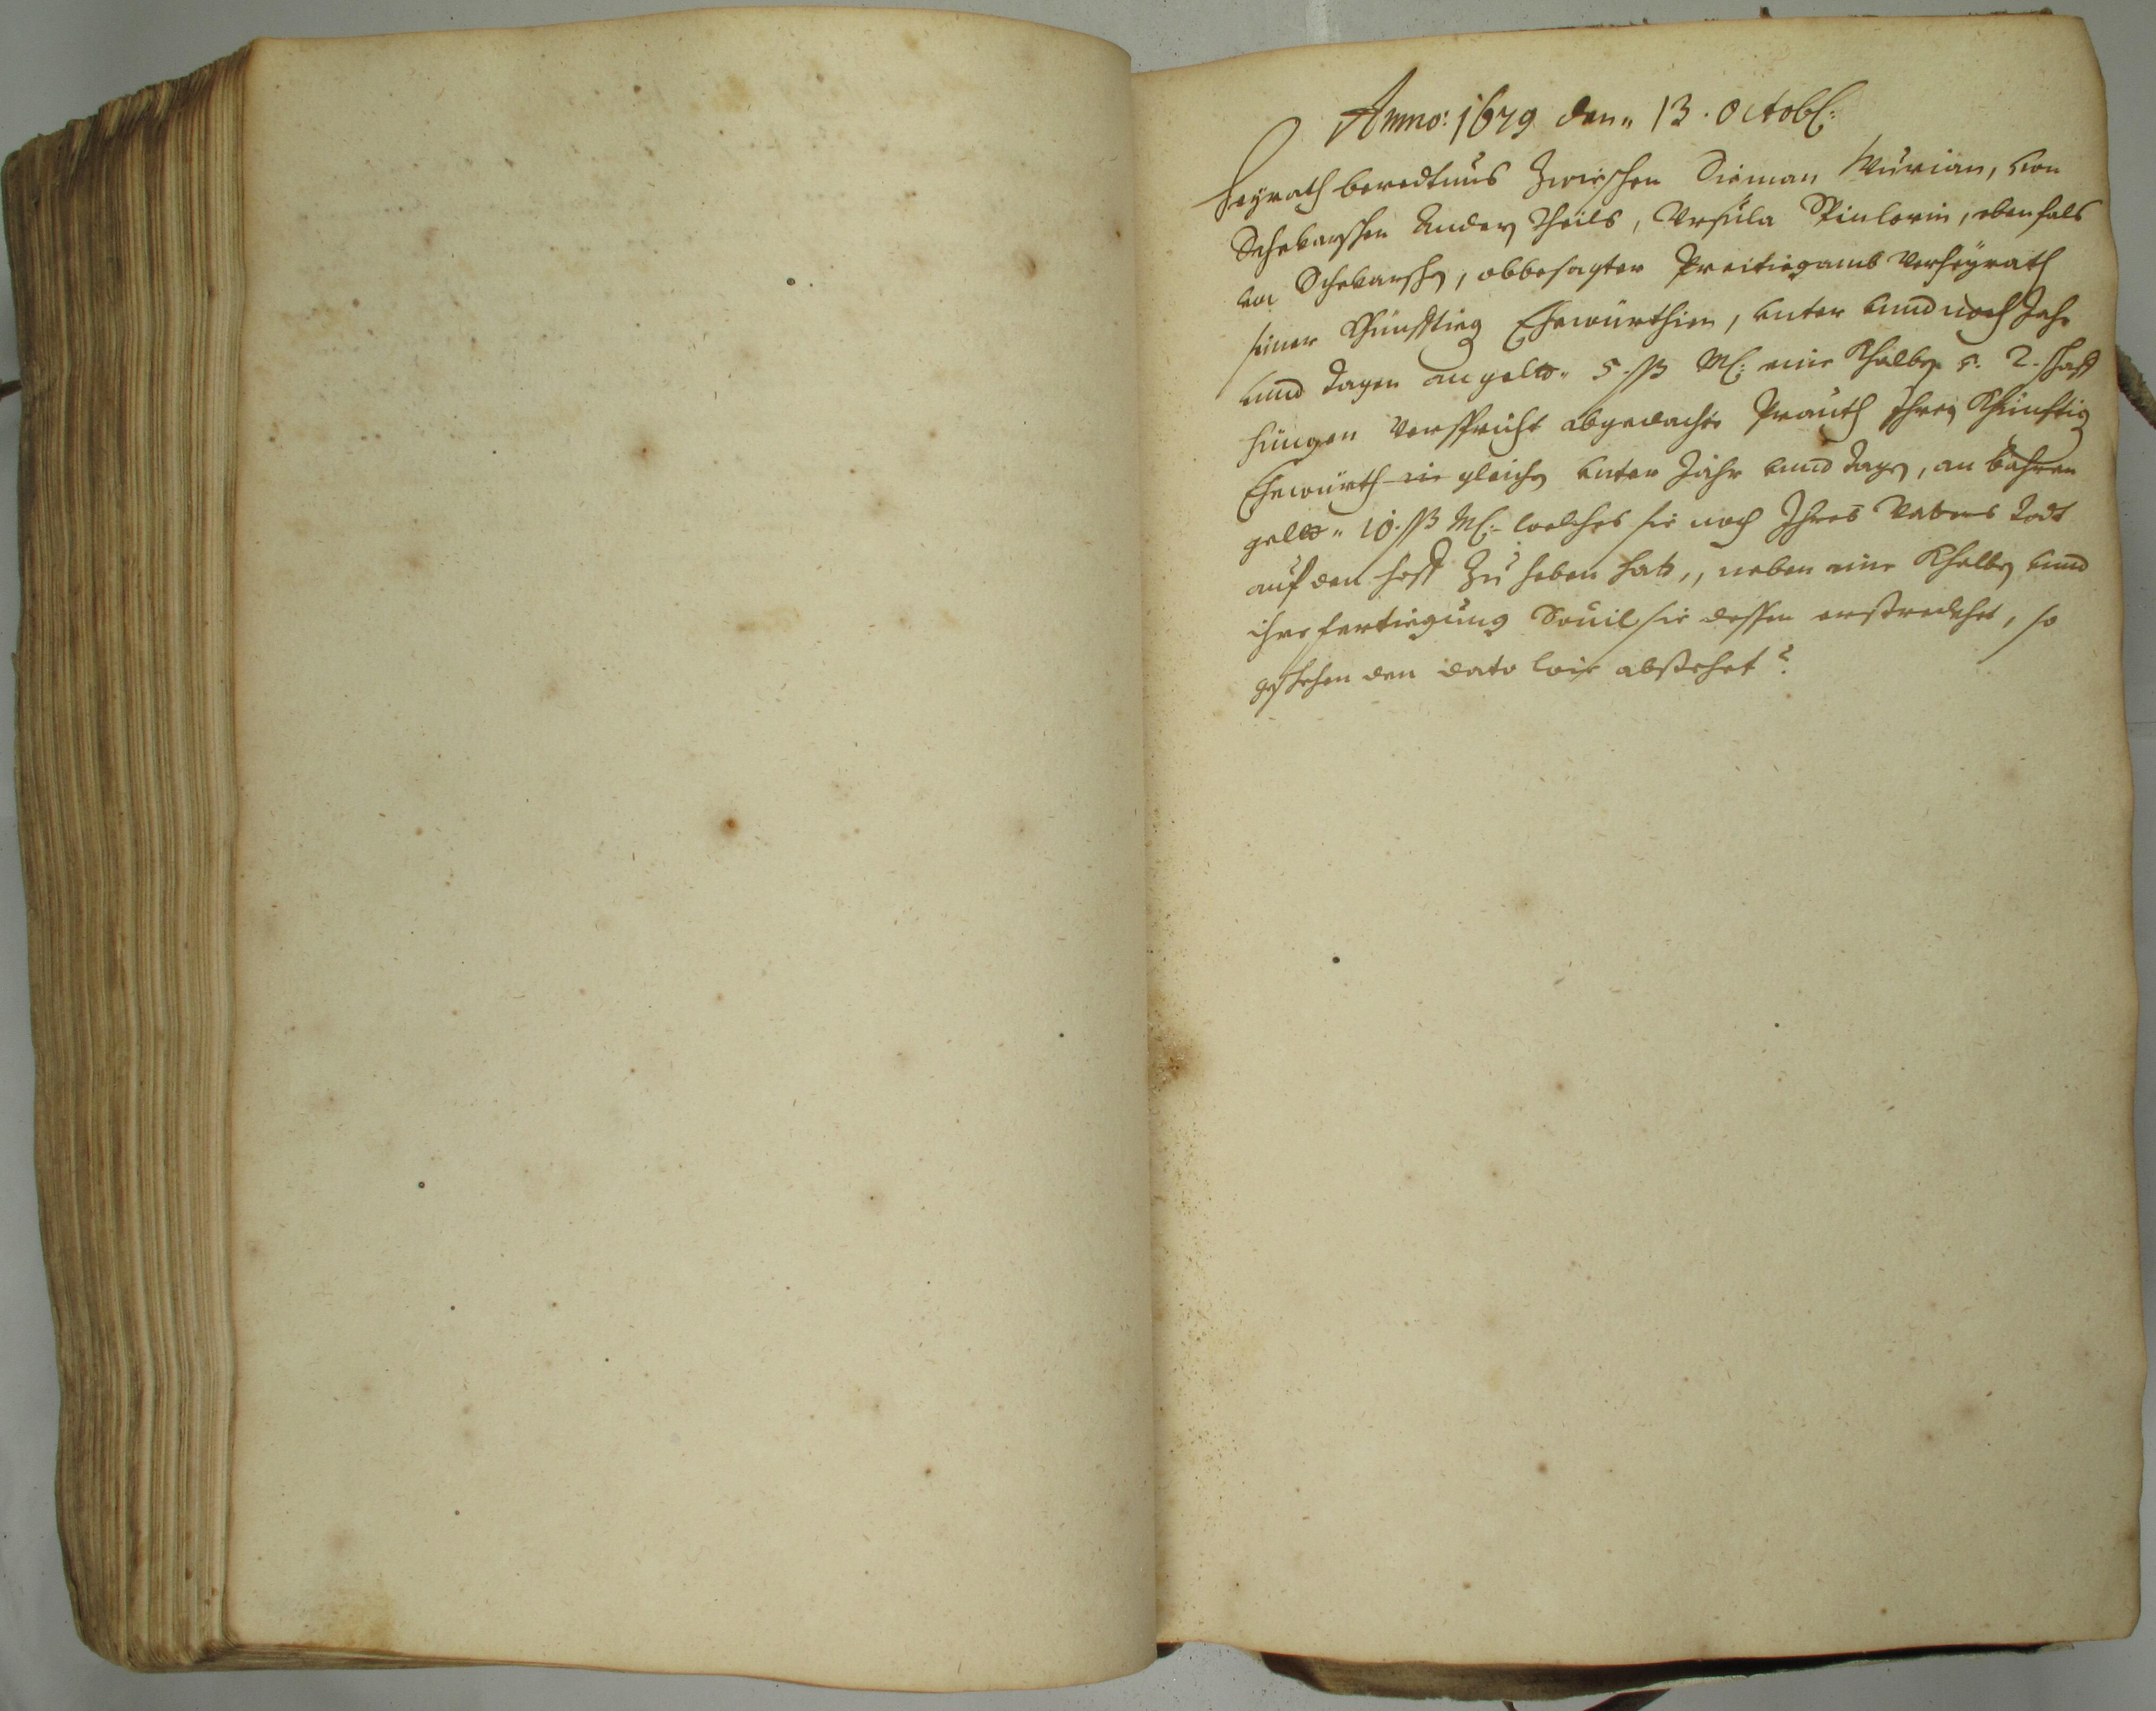 Anno: 1679 den„ 13. Octob:
Heÿrath beredtnus Zwischen Siman Murian, von
Schebarschen Anders Theils, Ursula Pinlerin, ebenfals
von Schebarschen, obbesagter Preitiegamb Verheÿrath
seiner Khünfftieg Ehewürthin, unter und noch Jahr
und Tagen an geldt„ 5. ß M: eine Khalben s. 2. schaff
hüngen Verspricht abgedachte Prauth Ihren Khünftig
Ehewürth in gleichen unter Jahr und Tagen, an Bahren
geldt„ 10. ß M: welches sie nach Ihres Vaters Todt
auf den hoff Zu heben hat„ neben eine Khalben und
ihre fertiegung Souil sie dessen erstrekhet, so
geschehen den dato wie abstehet